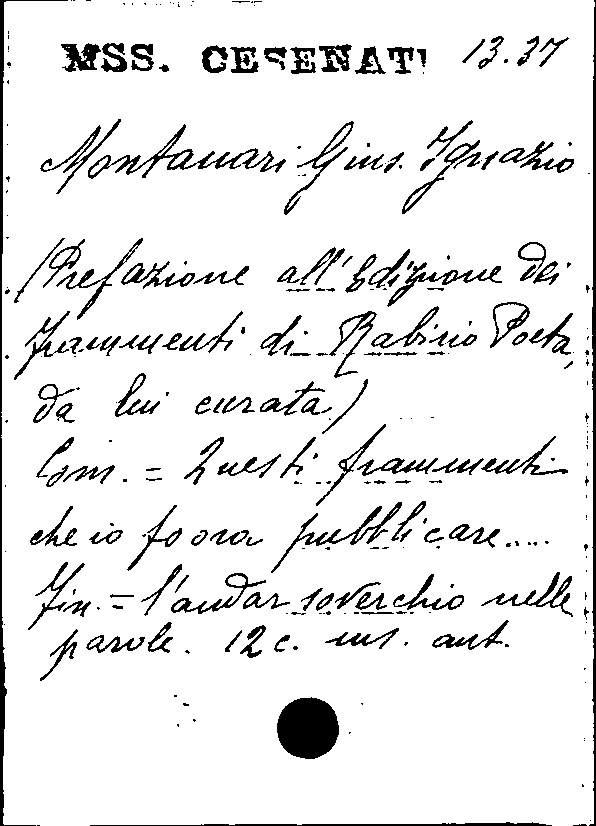 MSS. CESENATI 13.37
Montanari Gius. Ignazio
(Prefazione all'Edizione dei
frammenti di Rabirio Poeta,
da lui curata)
Com. = Questi frammenti
che io fo ora pubblicare....
Fin. = l'andar soverchio nelle
parole. 12 c. ms. aut.